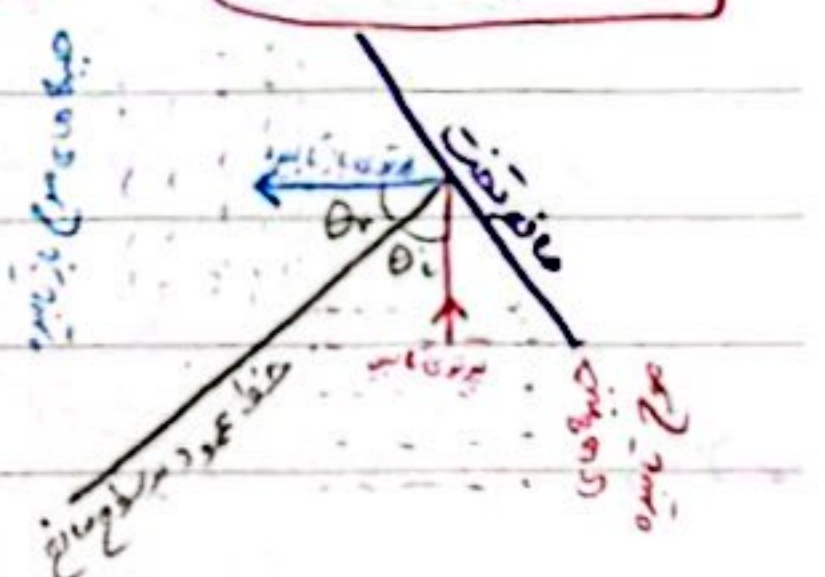 جبهه‌های موج بازتابیده
پرتوی بازتابیده
مانع تخت
θr
θi
پرتوی تابیده
خط عمود بر سطح مانع
جبهه‌های
موج تابیده